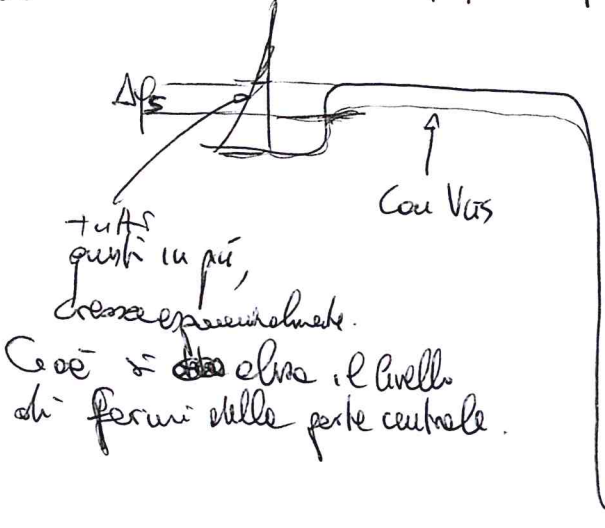 Δφs
Con VGS
tutti
questi in più,
cresce esponenzialmente.
Cioè si alza il livello
di fermi della parte centrale.